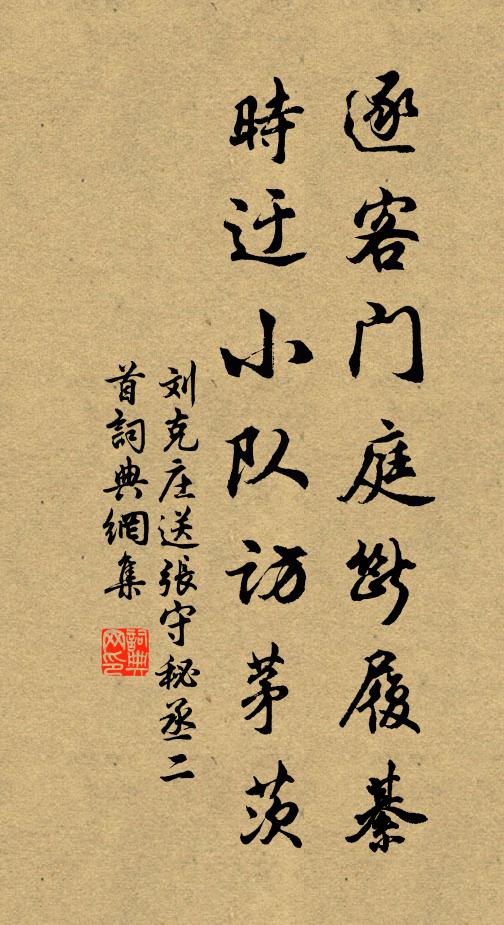 逐客门庭断履綦
時迂小队访茅茨
刘克庄送張守秘丞二
首詞典網集
詞典网印